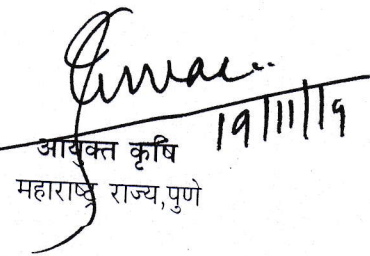 19/11/19
आयुक्त कृषि
महाराष्ट्र राज्य,पुणे